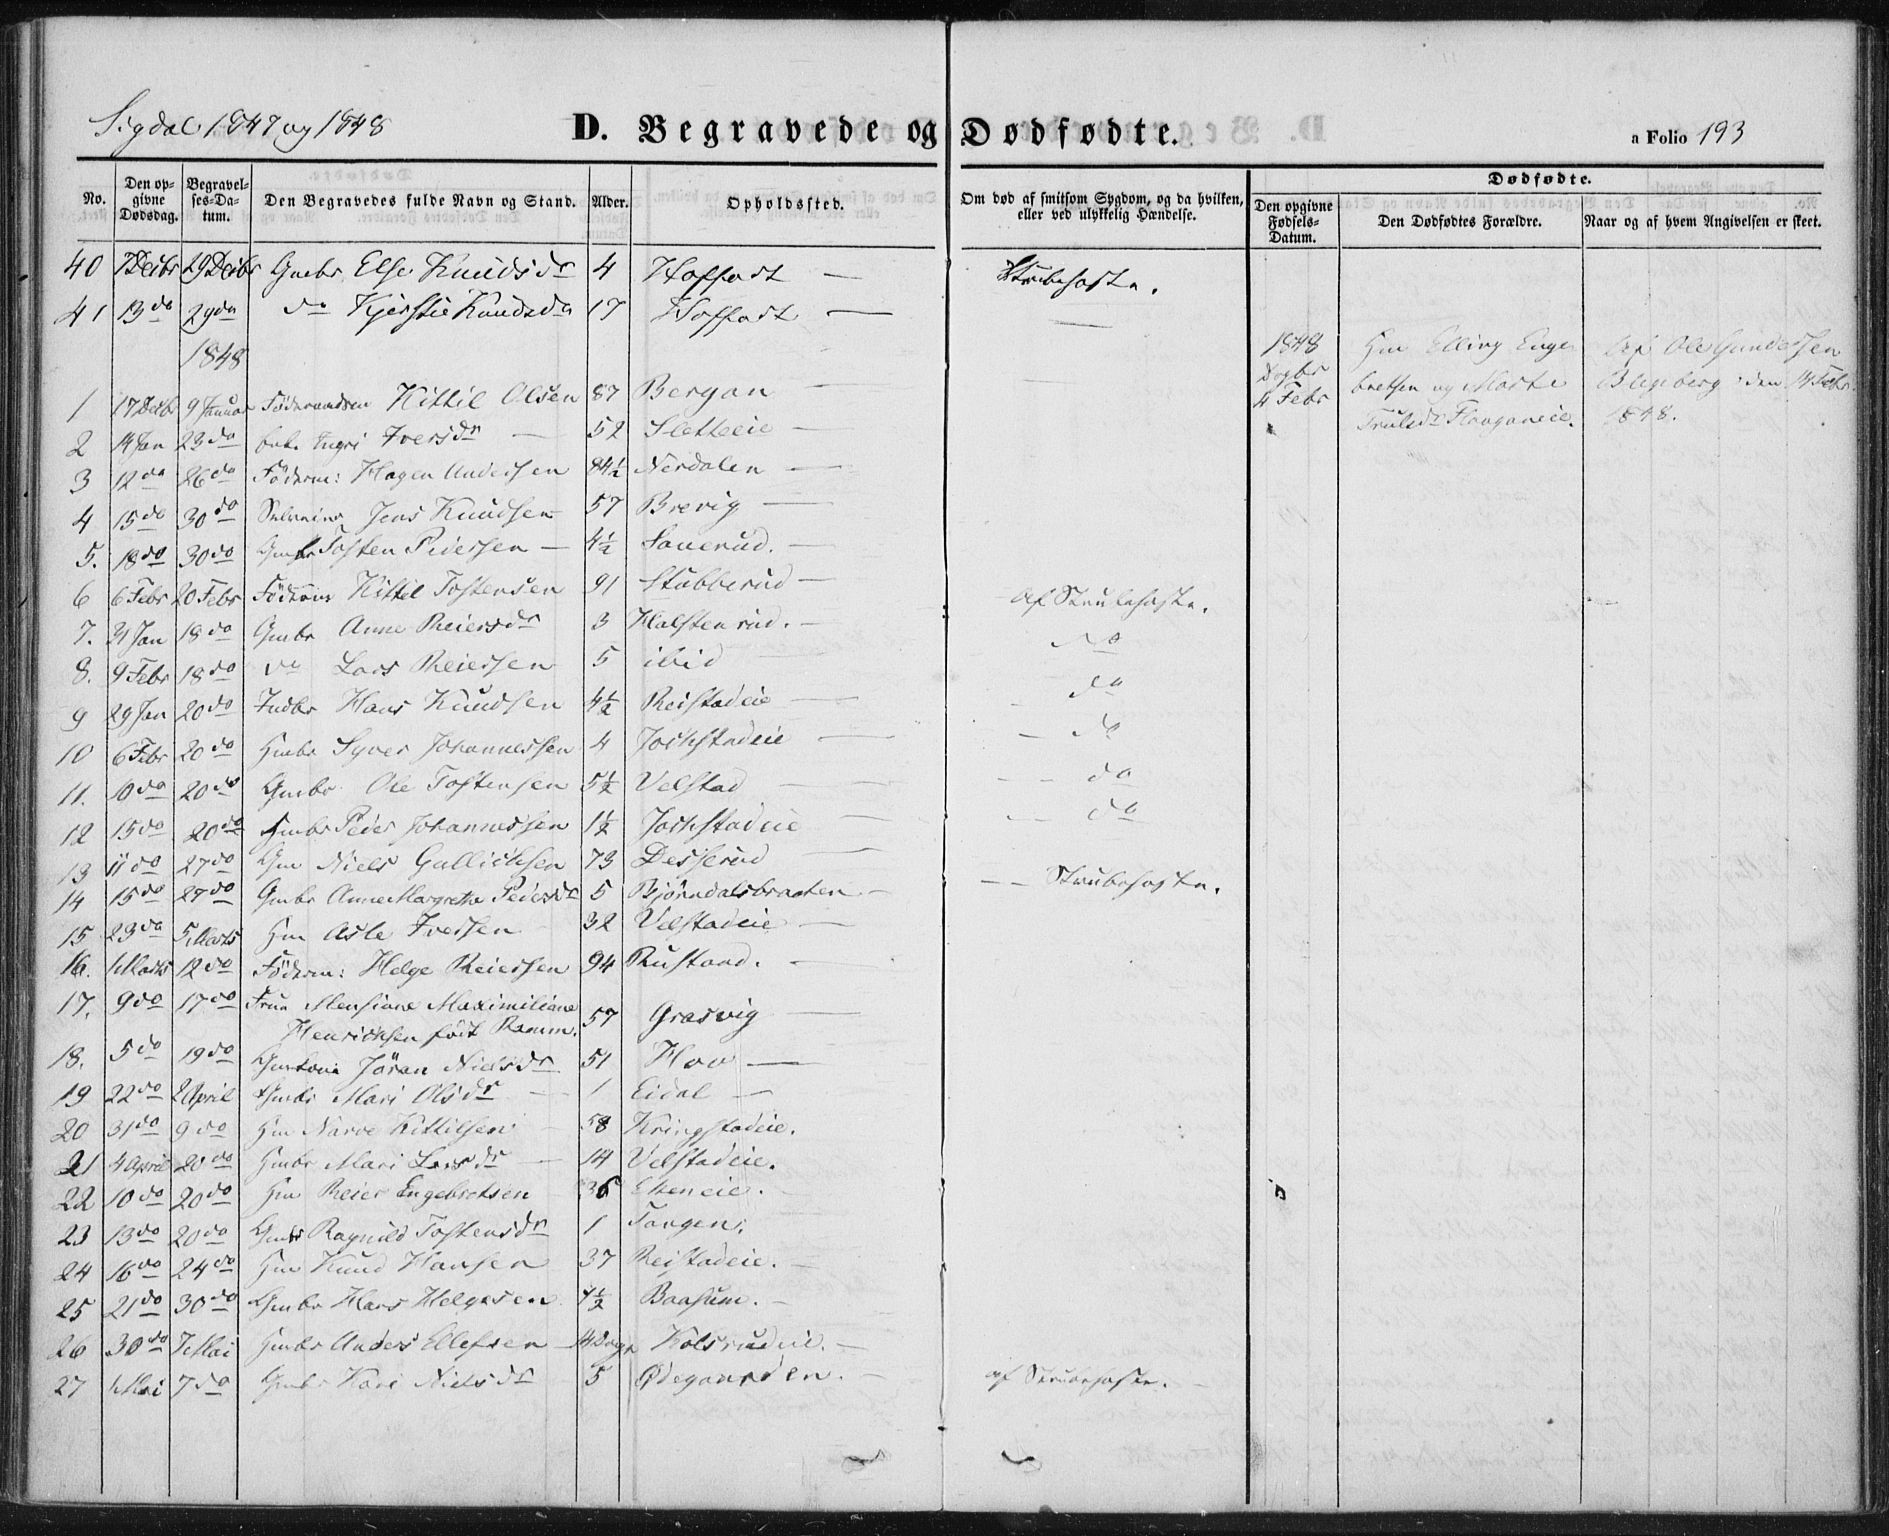 Sigdal 1847 og 1848
D. Begravede og Dødfødte.
a Folio 193
No.
Den opgivne Dødsdag.
Begravelses-Datum.
Den Begravedes fulde Navn og Stand.
Alder.
Opholdssted.
Om død af smitsom Sygdom, og da hvilken, eller ved ulykkelig Hændelse.
Dødfødte.
Den opgivne Fødsels-Datum.
Den Dødfødtes Forældre.
Naar og af hvem Angivelsen er skeet.
40 7 Decbr 29 Decbr Gmbr Else Knudsdr 4 Hoffart — Strubehoste.
41 13 do 29 do do Kjerstie Knudsdr 17 Hoffart —
1848
1 17 Decbr 9 Januar Föderaadsm Kittil Olsen 87 Bergan —
2 14 Jan 23 do Ingri Iversdr — 52 Sletteeie —
3 12 do 26 do Föderm: Hagen Andersen 84½ Nerdalen —
4 15 do 30 do Jens Knudsen 57 Brevig —
5. 18 do 30 do Gmbr Tosten Pedersen — 4½ —
6 6 Febr 20 Febr Föderm Kittel Tostensen 91 Stubberud —
7. 31 Jan 18 do Gmbr Anne Reiersdr 3 Halstenrud. — Af Strubehoste.
8. 9 Febr 18 do do Lars Reiersen 5 ibid do
9 29 Jan 20 do Indbr Hans Knudsen 4½ Reistadeie — do
10 6 Febr 20 do Hmbr Syver Johannessen 4 Joshstadeie — do
11. 10 do 20 do Gmbr Ole Tostensen 5½ Velstad — do
12 15 do 20 do Hmbr Peder Johannessen 1½ Joshstadeie — do
13 11 do 27 do Gm Niels Gullichsen 73 Desserud —
14 15 do 27 do Gmbr Anne Margrethe Pedersdr 5 Bjørndalsbraaten — Strubehoste.
15 23 do 5 Marts Hm Asle Iversen 32 Velstadeie —
16. 1 Marts 12 do Föderm: Helge Reiersen 94 Rustand. —
17. 9 do 17 do Frue Mensiane Maximiliane
Henrichsen födt Ramm. 57 Græsvig —
18. 5 do 19 do Gmkone Jöran Nielsdr 51 Hov —
19 22 do 2 April Gmbr Mari Olsdr — 1 Eidal —
20 31 do 9 do Hm Narve Kittilsen 58 Kringstadeie.
21 4 April 20 do Hmbr Mari Larsdr — 14 Velstadeie.
22 10 do 20 do Hm Reier Engebretsen 36 Ekeneie. —
23 13 do 20 do Gmbr Ragnild Tostensdr 1 Tangen.
24 16 do 24 do Hm Knud Hansen 37 Reistadeie. —
25 21 do 30 do Gmbr Hans Helgesen ½ Baasum. —
26 30 do 7 Mai Hmbr Anders Ellefsen 14 Dage Kolsrudeie. —
27 1 Mai 7 do Gmbr Kari Nielsdr 5 Ødegaarden. — af Strubehoste.
1848
4 Febr
Hm Elling Engebretsen og Marte Trulsdr Haaganeie.
Af Ole Gundersen Blegeberg den 14 Febr 1848.